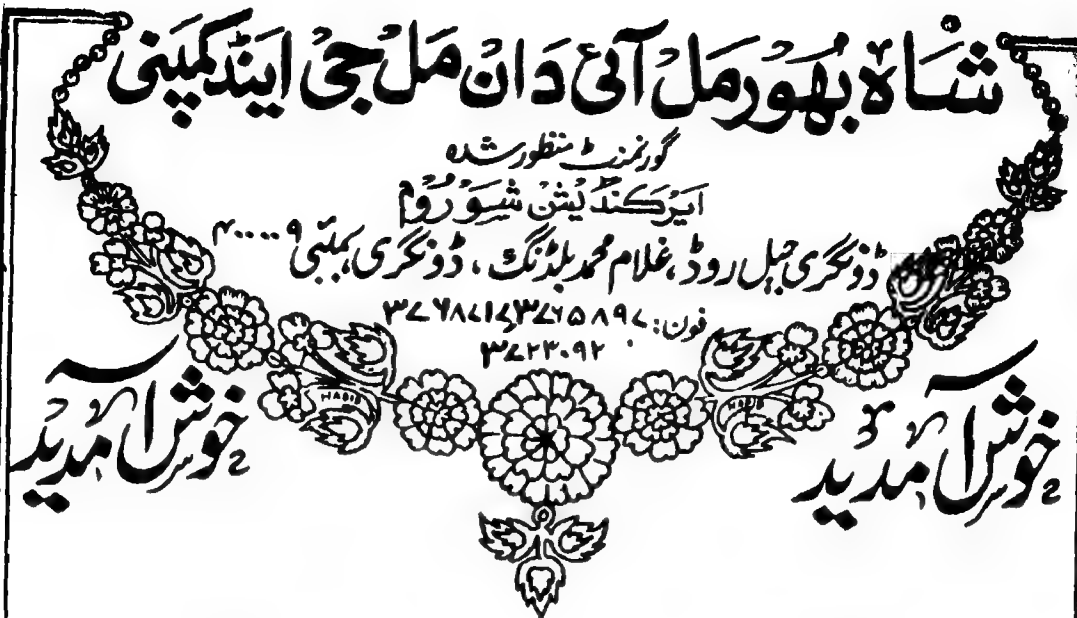 شاہ بھورمل آئی دان مل جی اینڈ کمپنی
گورنمنٹ منظور شدہ
ایرکنڈیشن شوروم
ڈونگری جیل روڈ، غلام محمد بلڈنگ، ڈونگری، بمبئی ۴۰۰۰۰۹
فون: ۳۷۶۵۸۹۷ر۳۷۶۸۷۱۷
۳۷۲۳۰۹۲
خوش آمدید
خوش آمدید
HABIB
HABIB